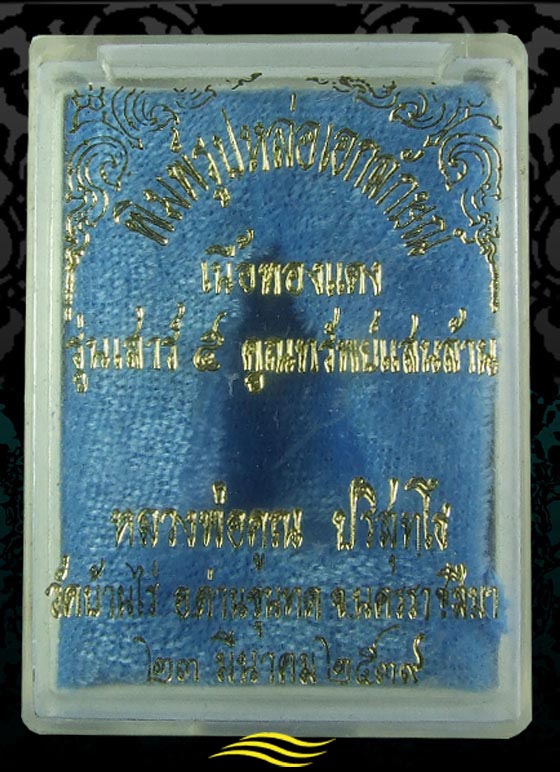 พิมพ์รูปหล่อเอกลักษณ์
เนื้อทองแดง
รุ่นเสาร์ ๕ คูณทรัพย์แสนล้าน
หลวงพ่อคูณ ปริสุทฺโธ
วัดบ้านไร่ อ.ด่านขุนทด จ.นครราชสีมา
๒๓ มีนาคม ๒๕๓๙